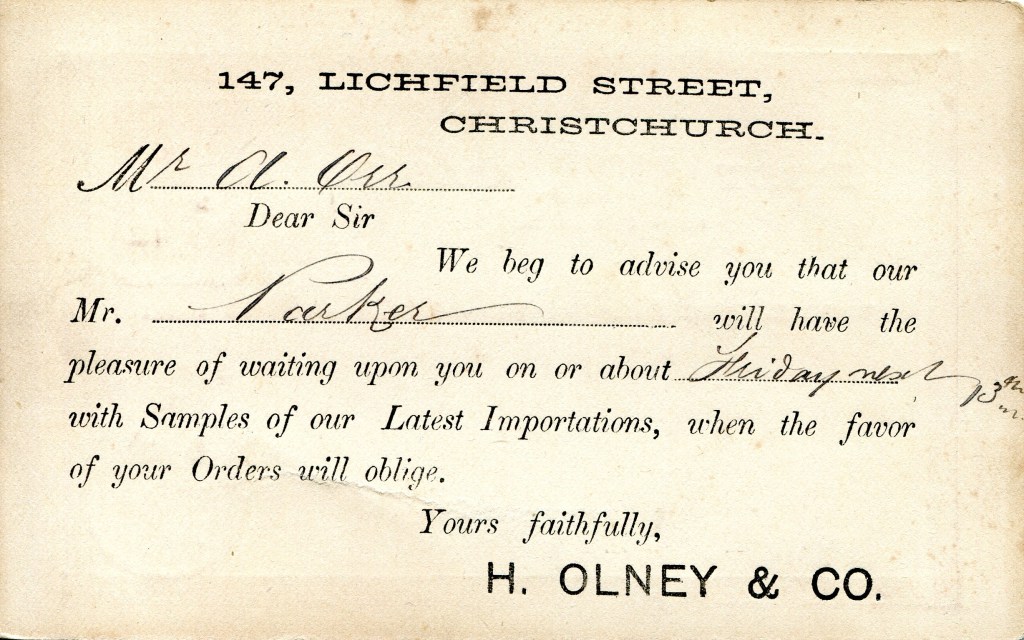 147, LICHFIELD STREET,
CHRISTCHURCH.
Mr A. Orr
Dear Sir
We beg to advise you that our
Mr. Parker will have the
pleasure of waiting upon you on or about Friday next 13th
with Samples of our Latest Importations, when the favor
of your Orders will oblige.
Yours faithfully,
H. OLNEY & CO.